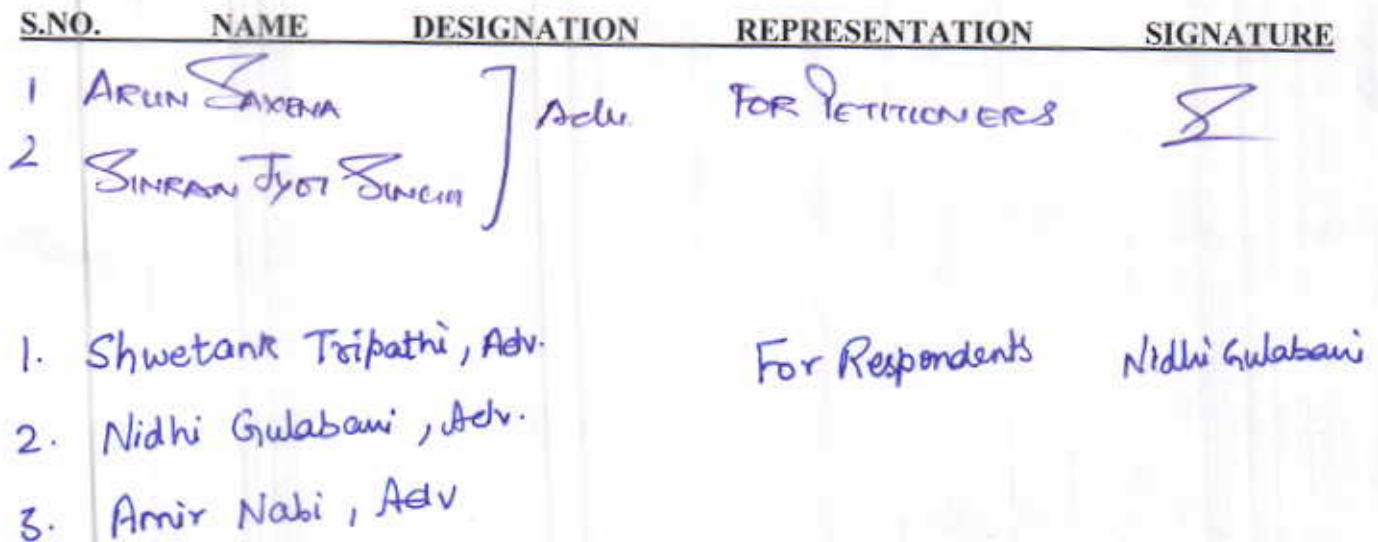 S.NO. NAME DESIGNATION REPRESENTATION SIGNATURE
1 ARUN SAXENA ] Adv. FOR PETITIONERS
2 SIMRAN JYOT SINGH
1. Shwetank Tripathi, Adv. For Respondents Nidhi Gulabani
2. Nidhi Gulabani, Adv.
3. Amir Nabi, Adv